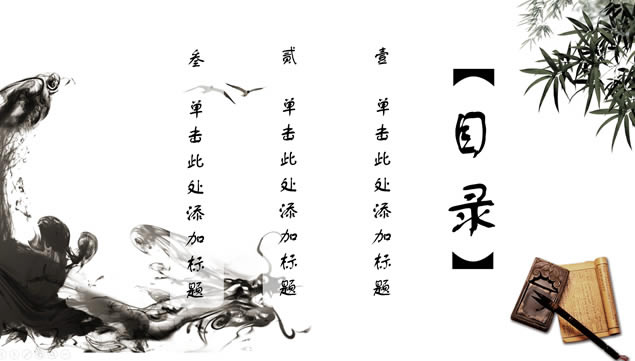 【目录】
壹 单击此处添加标题
贰 单击此处添加标题
叁 单击此处添加标题